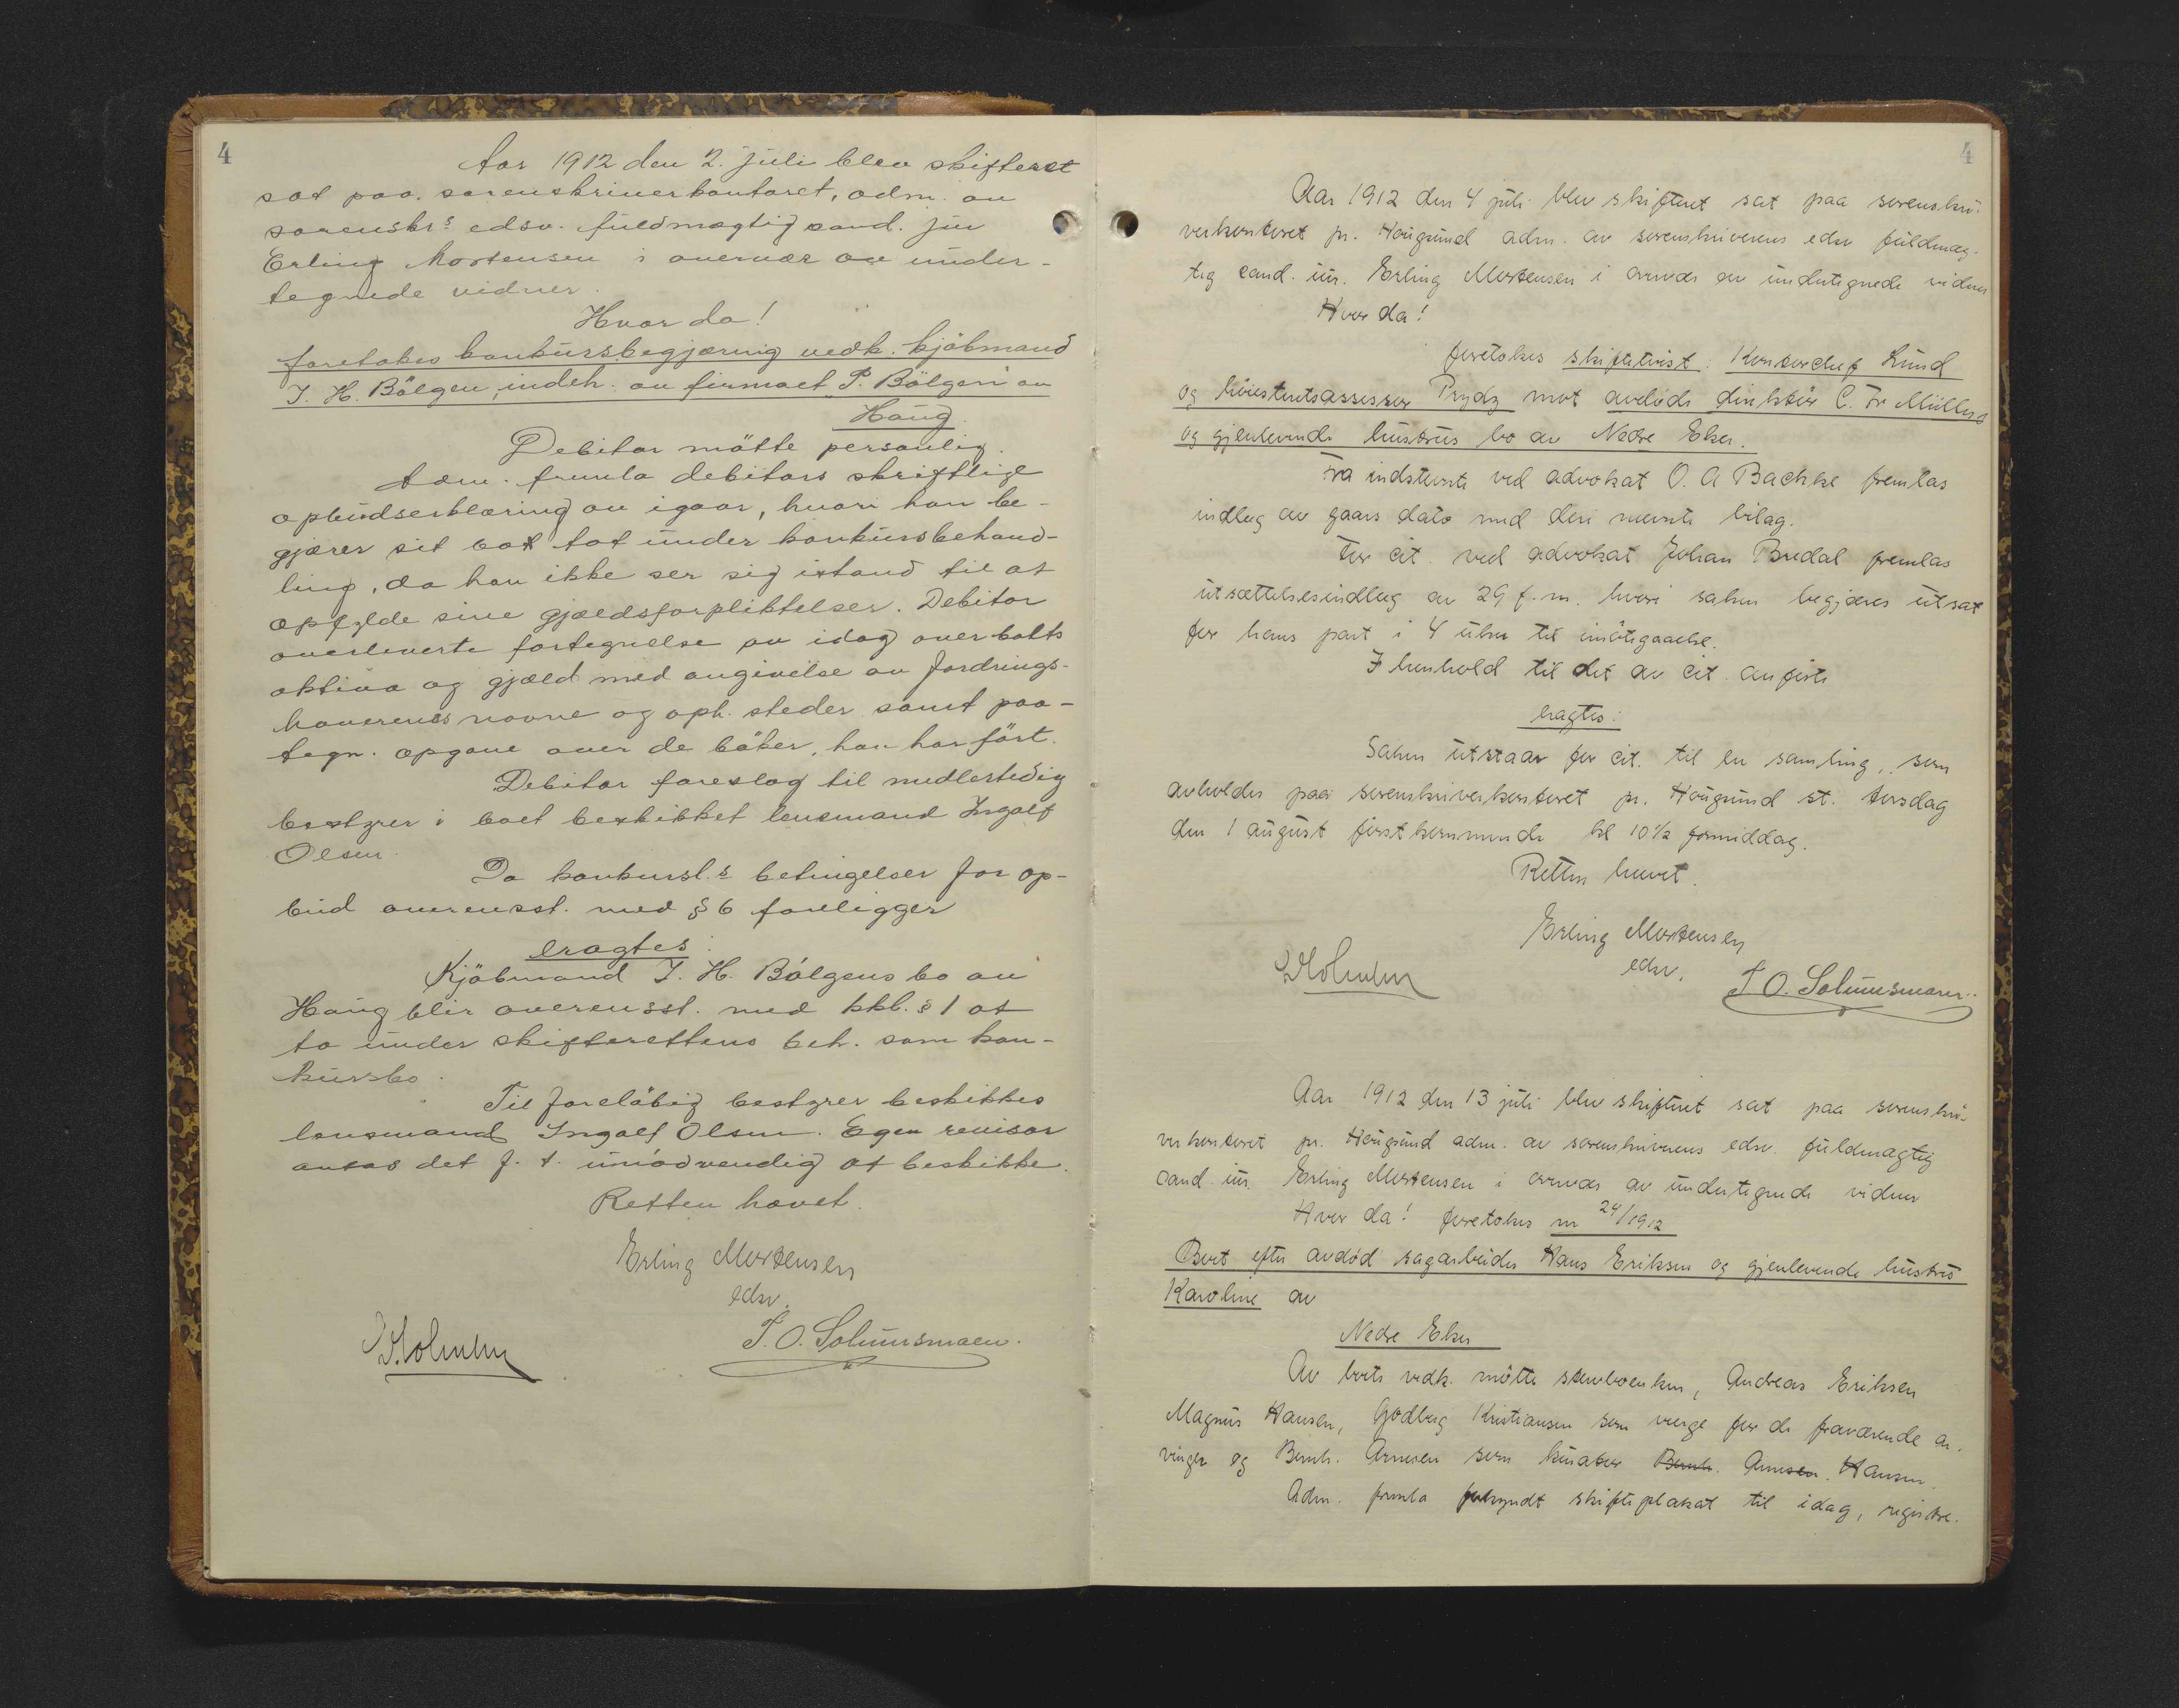 4
Aar 1912 den 2. juli blev skifteret
sat paa sorenskriverkontoret, adm. av
sorenskrs edsv. fuldmægtig cand. jur
Erling Mortensen i overvær av under-
tegnede vidner.
Hvor da!
foretokes konkursbegjæring vedk. kjöbmand
J. H. Bölgen, indeh. av firmaet P. Bölgen av
Haug.
Debitor mötte personlig.
Adm. fremla debitors skriftlige
opbudserklæring av igaar, hvori han be-
gjærer sit bo tat under konkursbehand-
ling, da han ikke ser sig istand til at
opfylde sine gjældsforpliktelser. Debitor
overleverte fortegnelse av idag over boets
aktiva og gjæld med angivelse av fordrings-
havernes navne og oph. steder samt paa-
tegn. opgave over de böker, han har fört.
Debitor foreslog til midlertidig
bestyrer i boet beskikket lensmand Ingolf
Olsen.
Da konkursl.s betingelser for op-
bud overensst. med § 6 foreligger
eragtes:
Kjöbmand J. H. Bölgens bo av
Haug blir overensst. med kkl. § 1 at
ta under skifterettens beh. som kon-
kursbo.
Til foreløbig bestyrer beskikkes
lensmand Ingolf Olsen. Egen revisor
antas det f. t. unödvendig at beskikke.
Retten hævet.
Erling Mortensen
edsv.
Holmen
T. O. Solumsmoen.
4
Aar 1912 den 4 juli blev skifteret sat paa sorenskri-
verkontoret pr. Hougsund adm. av sorenskriverens edsv fuldmæg-
tig cand. jur. Erling Mortensen i overvær av undertegnede vidner
Hvor da!
foretokes skiftetvist: Kontorchef Lund
og höiesteretsassessor Prydz mot avdöde direktör C. Fr Müllers
og gjenlevende hustrus bo av Nedre Eker.
Fra indstevnte ved advokat O. A Bachke fremlas
indlæg av gaars dato med deri nævnte bilag.
For cit. ved advokat Johan Bredal fremlas
utsættelsesindlæg av 29 f. m. hvori saken begjæres utsat
for hans part i 4 uker til imötegaaelse.
I henhold til det av cit. anførte
eragtes:
Saken utstaar for cit. til en samling, som
avholdes paa sorenskriverkontoret pr. Hougsund st. torsdag
den 1 august førstkommende kl 10½ formiddag.
Retten hævet.
Erling Mortensen
edsv.
Holmen
T. O. Solumsmoen.
Aar 1912 den 13 juli blev skifteret sat paa sorenskri-
verkontoret pr. Hougsund adm. av sorenskriverens edsv. fuldmægtig
cand. jur. Erling Mortensen i overvær av undertegnede vidner
Hvor da! foretokes nr 24/1912
Boet efter avdød sagarbeider Hans Eriksen og gjenlevende hustru
Karoline av
Nedre Eker
Av boets vedk. mötte stervboenken, Andreas Eriksen
Magnus Hansen, Godberg Kristiansen som verge for de fraværende ar-
vinger og Bernh. Arnesen som kurator Bernh. Arnesen. Hansen.
Adm. fremla forkyndt skifteplakat til idag, registre-